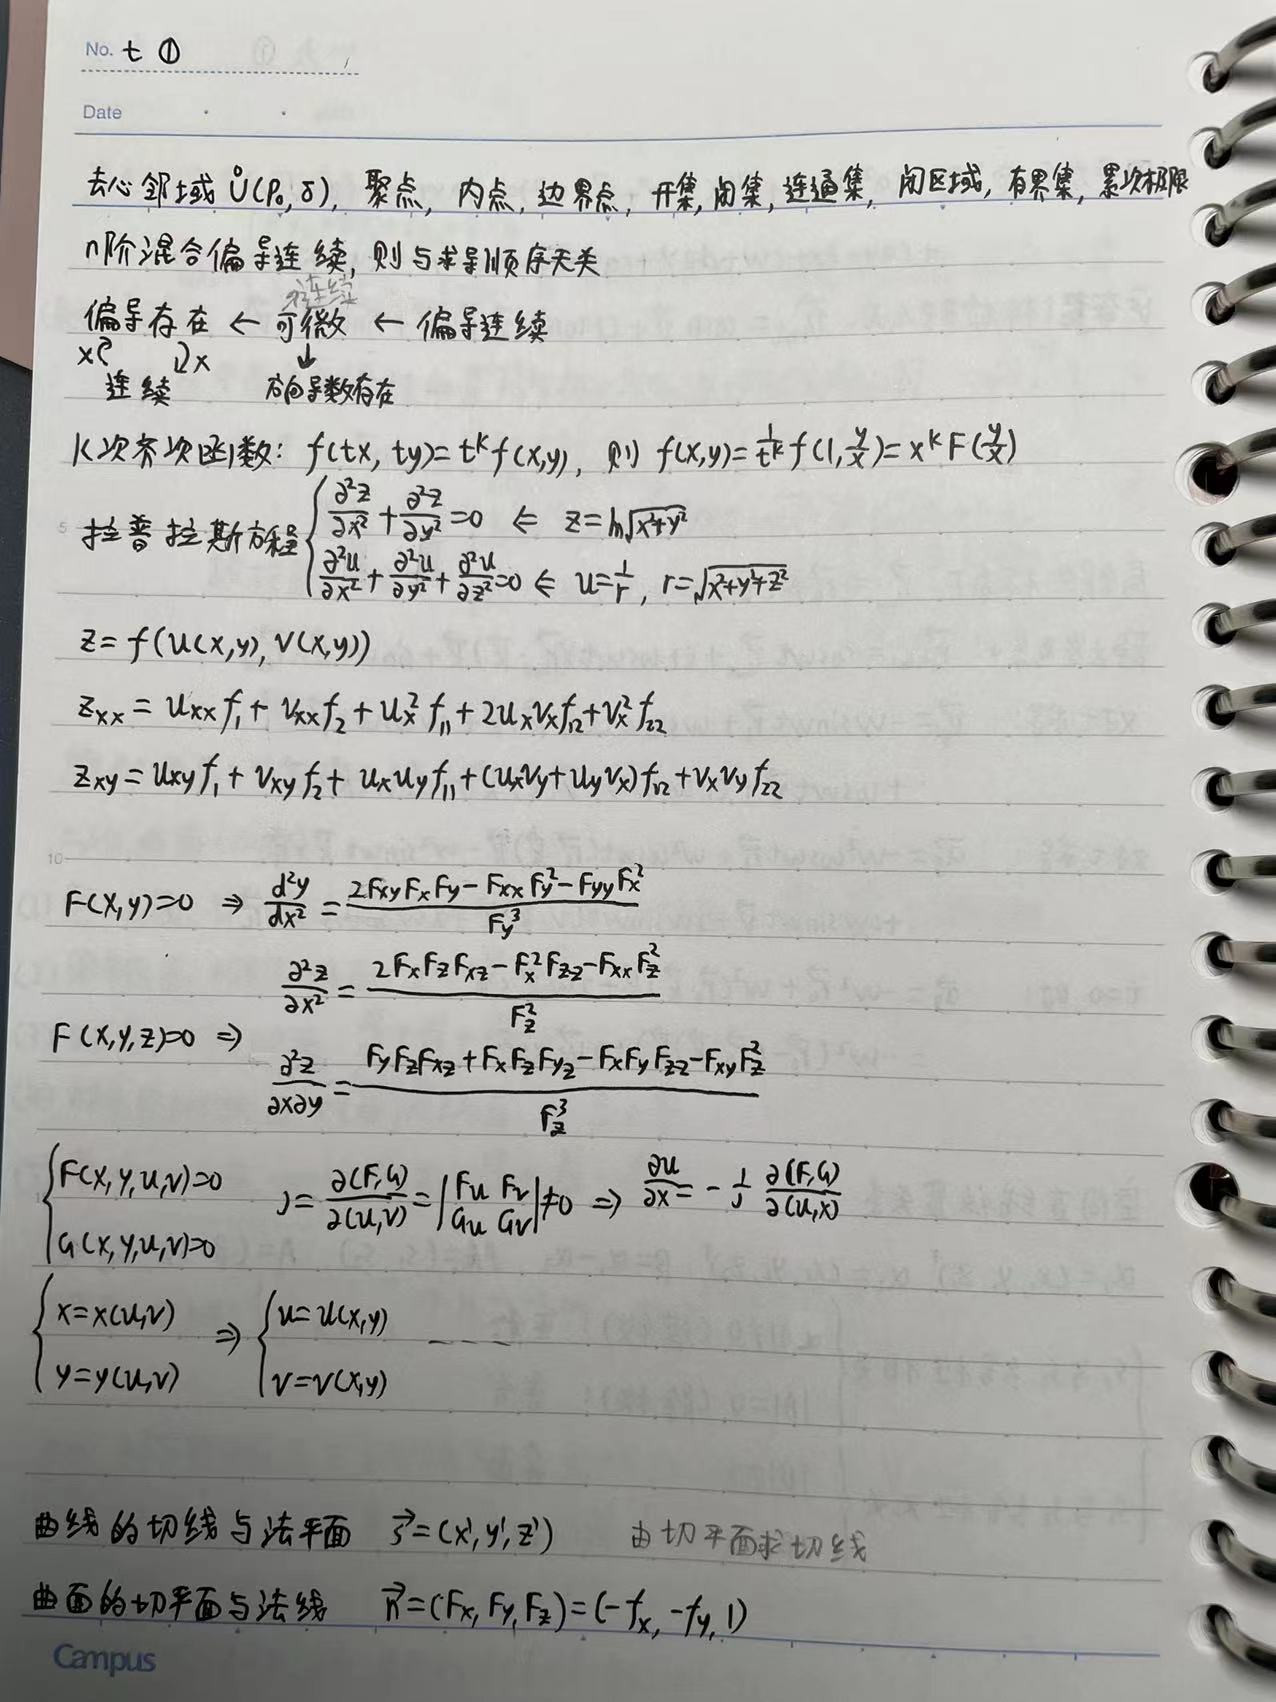 No. 七 ①
Date
去心邻域 Ů(P₀,δ), 聚点, 内点, 边界点, 开集, 闭集, 连通集, 闭区域, 有界集, 累次极限
n阶混合偏导连续, 则与求导顺序无关
连续
偏导存在 ← 可微 ← 偏导连续
× ↓ ×
连续 方向导数存在
K次齐次函数: f(tx, ty)=t^k f(x,y), 则 f(x,y)=1/t^k f(1,y/x)=x^k F(y/x)
5
拉普拉斯方程 { ∂²z/∂x² + ∂²z/∂y² =0 ⇐ z=ln√(x²+y²)
∂²u/∂x² + ∂²u/∂y² + ∂²u/∂z² =0 ⇐ u=1/r, r=√(x²+y²+z²)
z=f(u(x,y), v(x,y))
z_xx = u_xx f₁ + v_xx f₂ + u_x² f₁₁ + 2u_x v_x f₁₂ + v_x² f₂₂
z_xy = u_xy f₁ + v_xy f₂ + u_x u_y f₁₁ + (u_x v_y + u_y v_x) f₁₂ + v_x v_y f₂₂
10
F(x,y)=0 ⇒ d²y/dx² = (2F_xy F_x F_y − F_xx F_y² − F_yy F_x²)/F_y³
∂²z/∂x² = (2F_x F_z F_xz − F_x² F_zz − F_xx F_z²)/F_z²
F(x,y,z)=0 ⇒
∂²z/∂x∂y = (F_y F_z F_xz + F_x F_z F_yz − F_x F_y F_zz − F_xy F_z²)/F_z³
{ F(x,y,u,v)=0 J = ∂(F,G)/∂(u,v) = |F_u F_v; G_u G_v| ≠0 ⇒ ∂u/∂x = −1/J ∂(F,G)/∂(u,x)
G(x,y,u,v)=0
{ x=x(u,v) ⇒ { u=u(x,y) ----
y=y(u,v) v=v(x,y)
曲线的切线与法平面 s⃗=(x',y',z') 由切平面求切线
曲面的切平面与法线 n⃗=(F_x, F_y, F_z)=(−f_x, −f_y, 1)
Campus